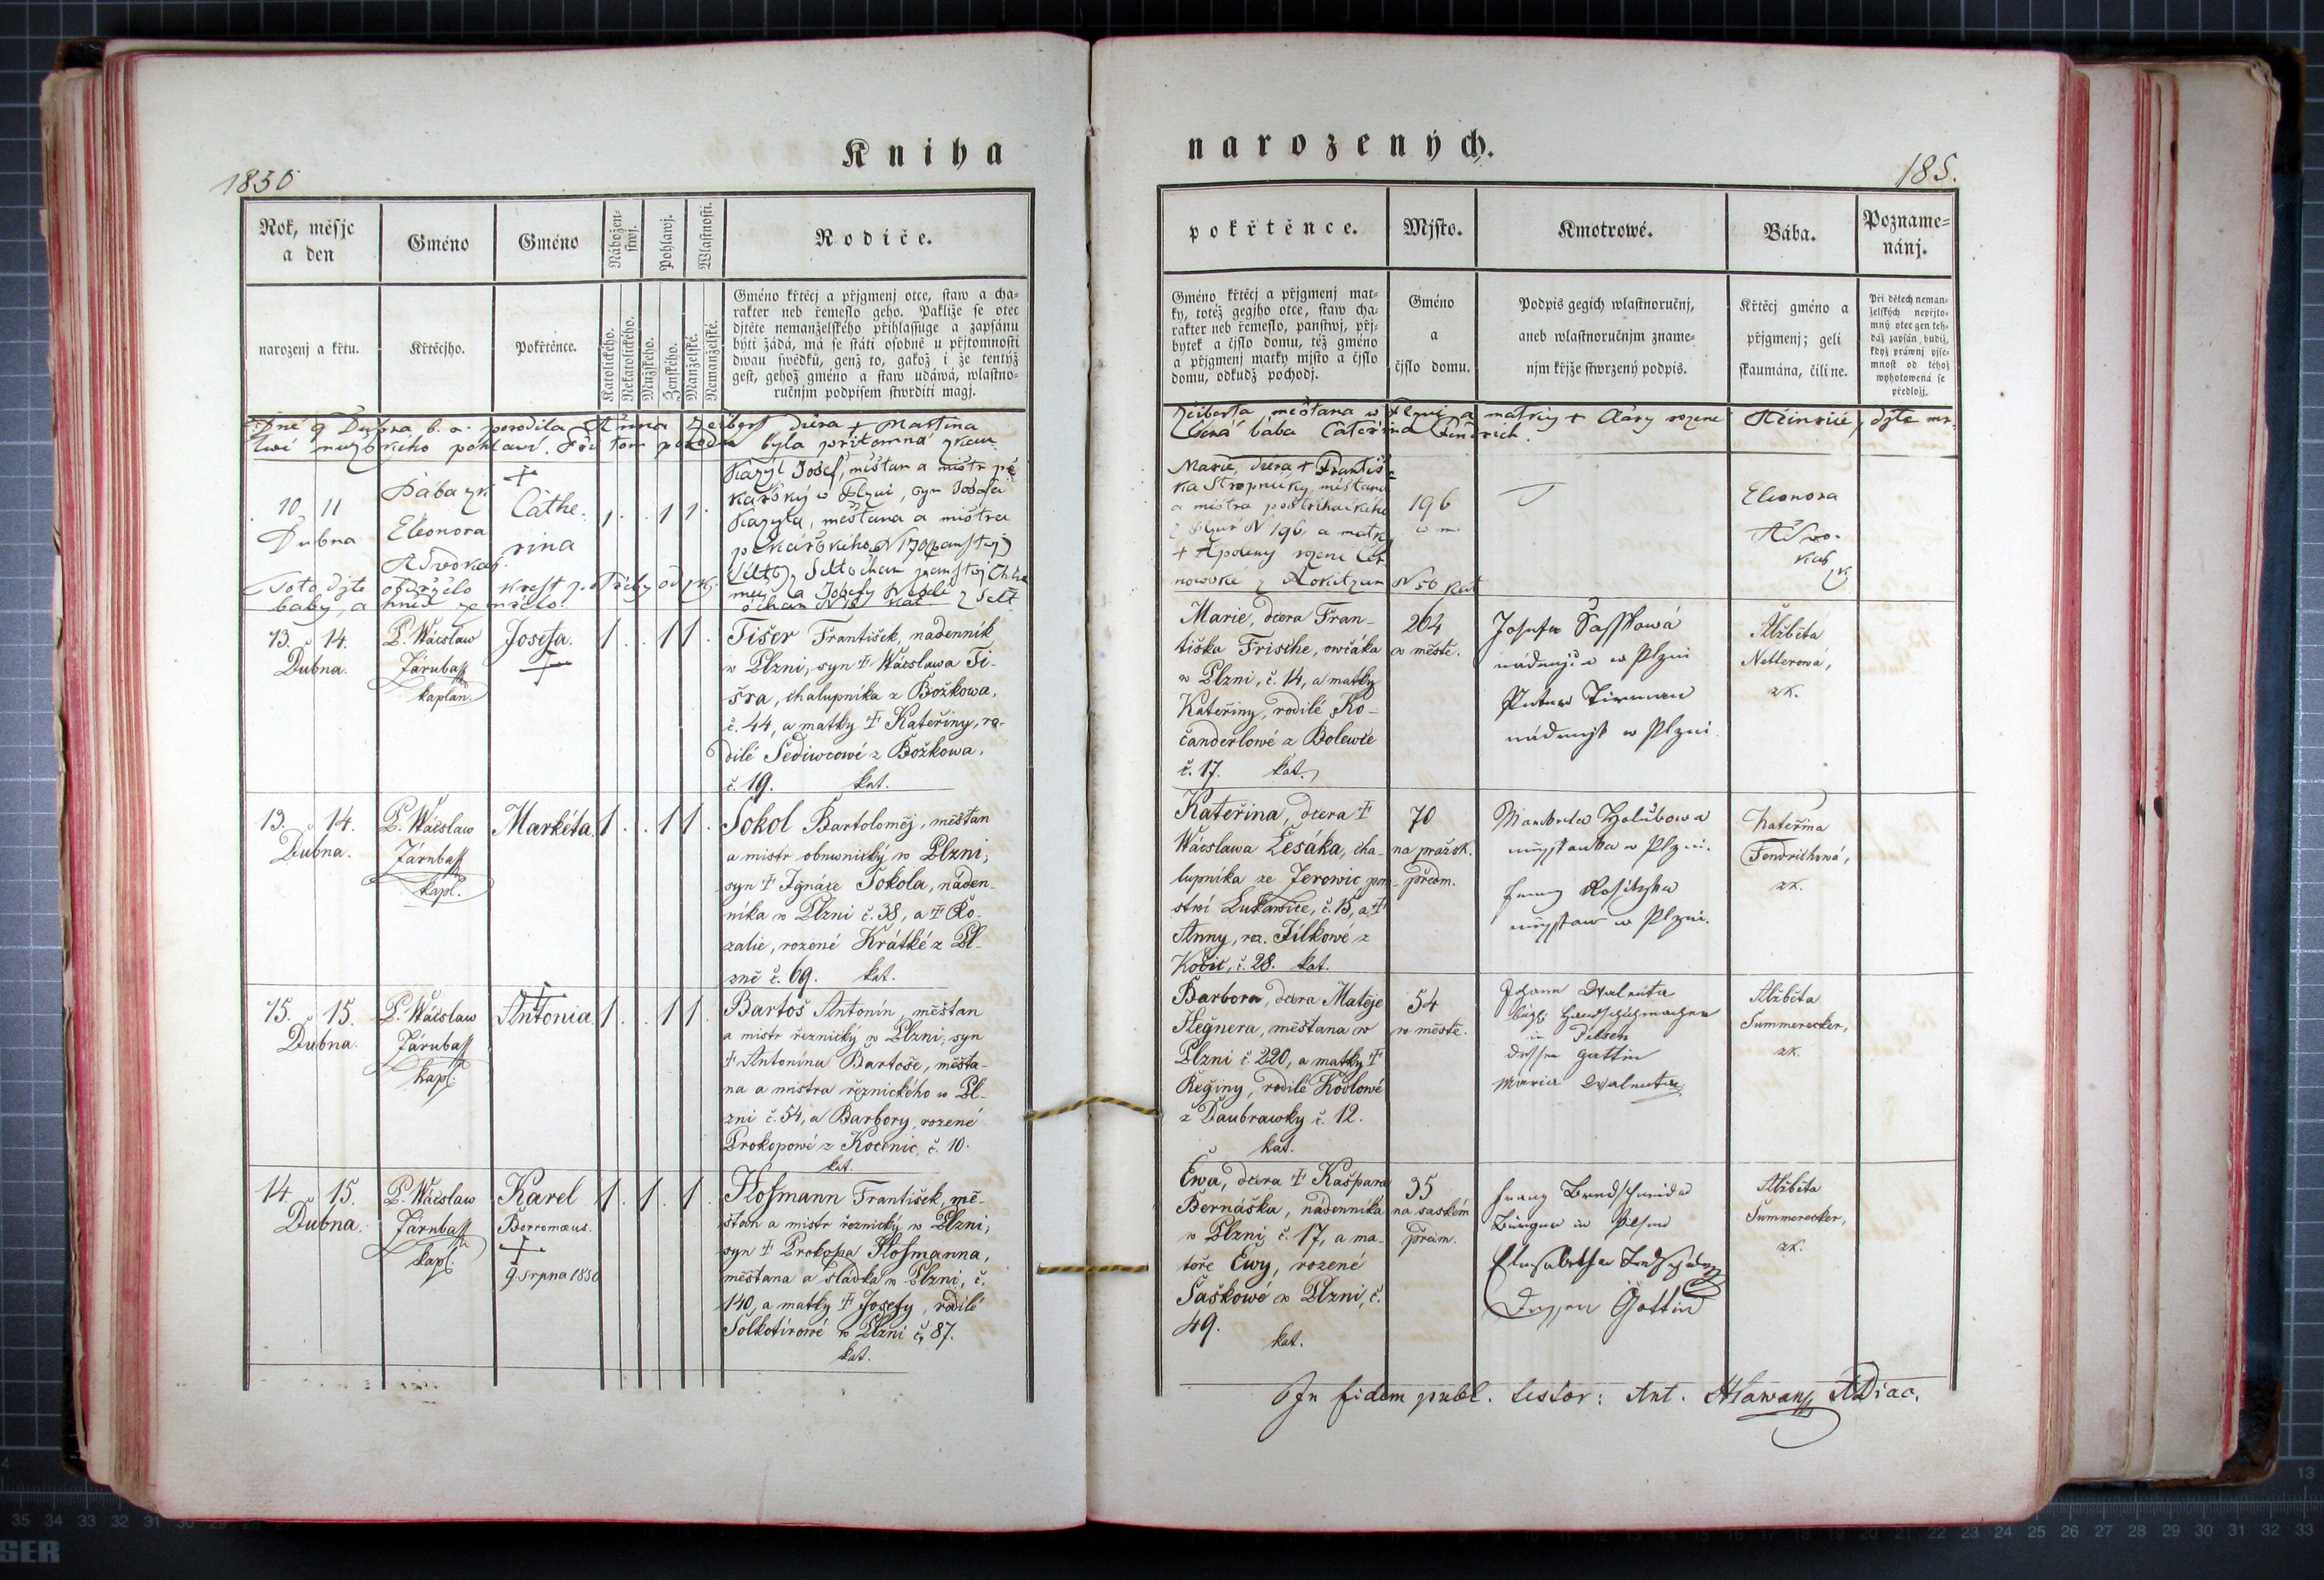 Kniha
narozených.
1850
185.
Rok, měsjc
a den
Gméno
Gméno
Nábožen-
stwj.
Pohlawj.
Wlastnosti.
Rodiče.
narozenj a křtu.
Křtěcjho.
Pokřtěnce.
Katolického.
Nekatolického.
Mužského.
Ženského.
Manželské.
Nemanželské.
Gméno křtěcj a přjgmenj otce, staw a cha-
rakter neb řemeslo geho. Pakliže se otec
djtěte nemanželského přihlassuge a zapsánu
býti žádá, má se státi osobně u přjtomnosti
dwau swědků, genž to, gakož i že tentýž
gest, gehož gméno a staw udáwá, wlastno-
ručnjm podpisem stwrditi magj.
pokřtěnce.
Mjsto.
Kmotrowé.
Bába.
Pozname-
nánj.
Gméno křtěcj a přjgmenj mat-
ky, totéž gegjho otce, staw cha-
rakter neb řemeslo, panstwj, přj-
bytek a čjslo domu, též gméno
a přjgmenj matky mjsto a čjslo
domu, odkudž pochodj.
Gméno
a
čjslo domu.
Podpis gegich wlastnoručnj,
aneb wlastnoručnjm zname-
njm křjže stwrzený podpis.
Křtěcj gméno a
přjgmenj; geli
skaumána, čili ne.
Při dětech neman-
želských nepřjto-
mný otec gen teh-
dáž zapsán budiž,
když práwnj pjse-
mnost od téhož
wyhotowená se
předložj.
Dne 9 Dubna b. r. porodila Anna Zeibert dcera + Martina
Zeiberta, měštana w Plzni a matky + Cláry rozené Heinrich, djte mr-
twé mužského pohlaví. Při tom porodu byla přítomná zkau-
šená bába Cateřina Fendrich.
10 11
Dubna
Bába zk
Eleonora
Cathe-
rina
1 . . 1 1 .
Kazyl Josef, měštan a mistr pe-
kařský w Plzni, syn Josefa
Kazyla, měštana a mistra
Toto djte obdrželo křest
baby, a hned zemřelo.
Marie, dcera + Františ-
ka Stropnicky, měštana
a mistra postřihačského
z Plzně N 196 a matky
nowské z Rokitzan N 50 kat
196
w m.
Eleonora
zk
13. 14.
Dubna.
P. Wácslaw
Járuba
kaplan.
Josefa.
1 . . 1 1 .
Tišer František, nadenník
w Plzni, syn + Wácslawa Ti-
šra, chalupníka z Božkowa,
č. 44, a matky + Kateřiny, ro-
dilé Sediwcowé z Božkowa.
č. 19. kat.
Marie, dcera Fran-
tiška Frische, owčáka
w Plzni, č. 14, a matky
Kateřiny, rodilé Ko-
čanderlowé z Bolewče
č. 17. kat.
264
w městě.
Josefa Sasskowá
nádenjce w Plzni
nádenjk w Plzni
Alžběta
Netterowá,
zk.
13. 14.
Dubna.
P. Wácslaw
Járuba
kapl.
Markéta.
1 . . 1 1 .
Sokol Bartoloměj, měštan
a mistr obuwnický w Plzni,
syn + Ignáce Sokola, náden-
níka w Plzni č. 38, a + Ro-
zalie, rozené Krátké z Pl-
zně č. 69. kat.
Kateřina, dcera +
Wácslawa Lesáka, cha-
lupníka ze Jerowic, pan-
stwí Lukawice, č. 15, a +
Anny, roz. Jílkowé z
Kočic, č. 28. kat.
70
na pražsk.
předm.
Markéta Holubowa
měsstanka w Plzni.
Franz Rositzka
měsstan w Plzni.
Kateřina
Fendrichowá,
zk.
15. 15.
Dubna.
P. Wácslaw
Járuba
kapl.
Antonia.
1 . . 1 1 .
Bartoš Antonín, měštan
a mistr řeznický w Plzni, syn
+ Antonína Bartoše, měšta-
na a mistra řeznického w Pl-
zni č. 54, a Barbory, rozené
Prokopowé z Kocenic, č. 10.
kat.
Barbora, dcera Matěje
Hegnera, měštana w
Plzni č. 220, a matky +
Reginy, rodilé Kodlowé
z Daubrawky č. 12.
kat.
54
w městě.
Johann Walenta
bürgl. Handschuhmacher
in Pilsen
dessen Gattin
Maria Walenta
Alžběta
Summerecker,
zk.
14. 15.
Dubna.
P. Wácslaw
Járuba
kapl.
Karel
Borromæus.
9 Srpna 1850
1 . 1 . 1 .
Hofmann František, mě-
štan a mistr řeznický w Plzni,
syn + Prokopa Hofmanna,
měštana a sládka w Plzni, č.
140, a matky + Josefy, rodilé
Solkotirowé w Plzni č. 87.
kat.
Ewa, dcera + Kašpara
Bernáška, nádenníka
w Plzni č. 17, a ma-
teře Ewy, rozené
Saškowé w Plzni, č.
49. kat.
35
na saském
předm.
Franz Bredschneider
Bürger in Pilsen
Elisabetha Bredschneider
Dessen Gattin
Alžběta
Summerecker,
zk.
In fidem publ. testor: Ant. Hlawan ADiac.